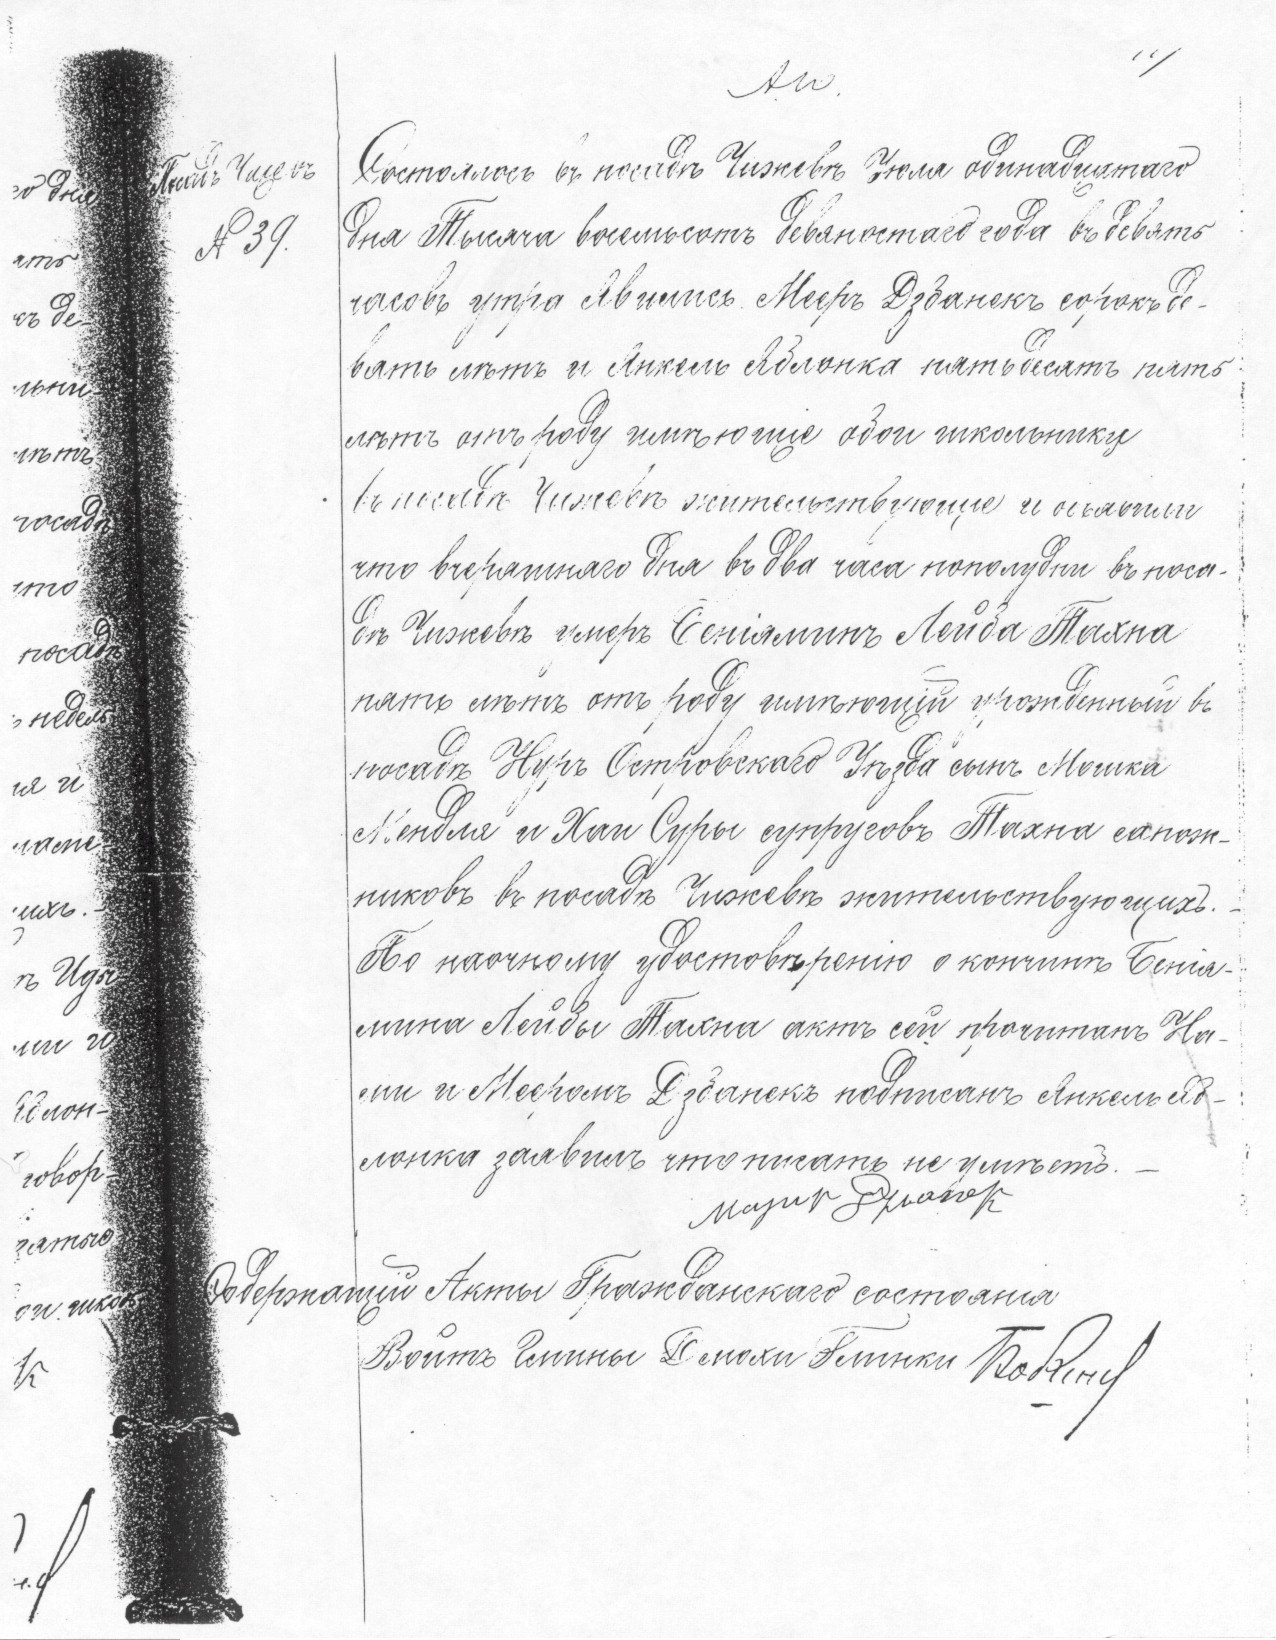 А.Ю.
Посадъ Чижевъ
№ 39.
Состоялось въ посадѣ Чижевѣ Іюля одинадцатаго
дня Тысяча восемьсотъ девяностаго года въ девять
часовъ утра Явились Мееръ Дзбанекъ сорокъ де-
вять лѣтъ и Янкель Яблонка пятьдесятъ пять
лѣтъ отъ роду имѣющіе обои школьники
въ посадѣ Чижевѣ жительствующіе и объявили
что вчерашняго дня въ два часа пополудни въ поса-
дѣ Чижевѣ умеръ Беніяминъ Лейба Тахна
пять лѣтъ отъ роду имѣющій урожденный въ
посадѣ Нуръ Островскаго Уѣзда сынъ Мошка
Мендля и Хаи Суры супруговъ Тахна сапож-
никовъ въ посадѣ Чижевѣ жительствующихъ. -
По наочному удостовѣренію о кончинѣ Бенія-
мина Лейбы Тахна актъ сей прочитанъ На-
ми и Мееромъ Дзбанекъ подписанъ Янкель Яб-
лонка заявилъ что писать не умѣетъ. -
Содержащій Акты Гражданскаго состоянія
Войтъ Гмины Дмохи Глинки
го дня
ять
къ де-
льни
лѣтъ
посадѣ
что
посадѣ
недель
ія и
ихъ. -
ми и
Яблон-
говор-